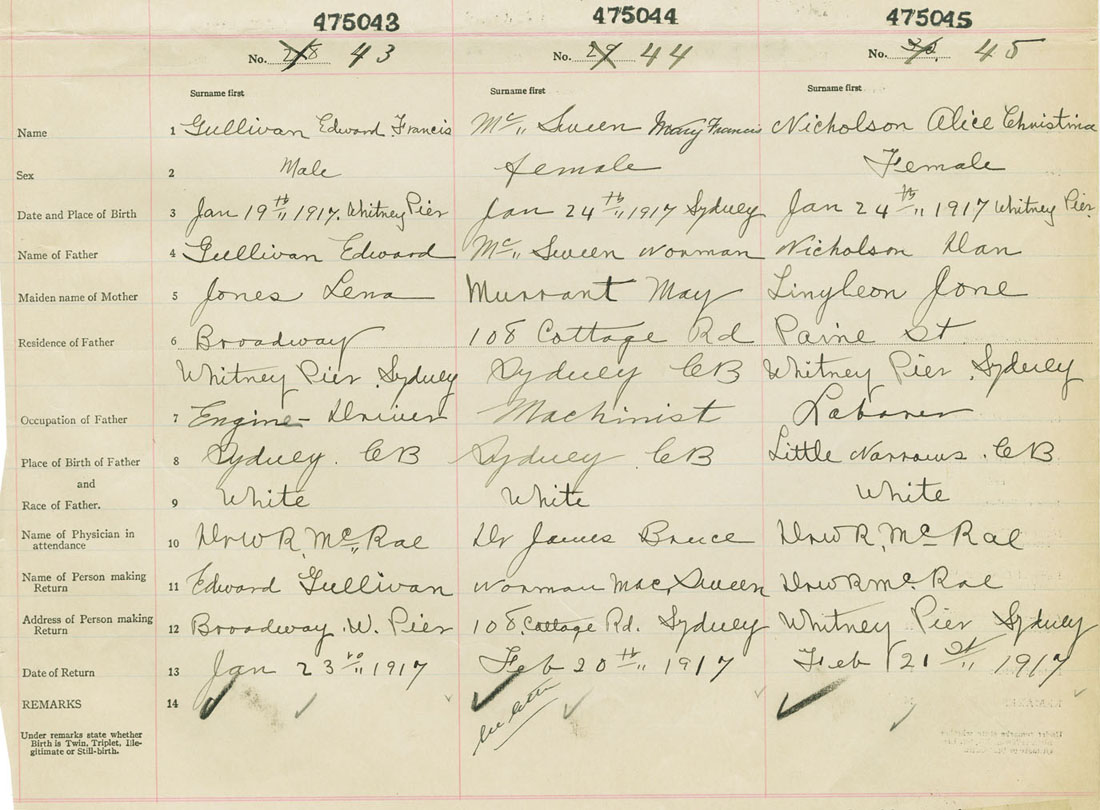 475043 475044 475045
No. 28 43 No. 29 44 No. 45
Surname first Surname first Surname first
Name 1 Gullivan Edward Francis Mc,, Sween Mary Francis Nicholson Alice Christina
Sex 2 Male female Female
Date and Place of Birth 3 Jan 19th,, 1917. Whitney Pier Jan 24th,, 1917 Sydney Jan 24th,, 1917 Whitney Pier
Name of Father 4 Gullivan Edward Mc,, Sween Norman Nicholson Dan
Maiden name of Mother 5 Jones Lena Murrant May Jone
Residence of Father 6 Broadway 108 Cottage Rd Paine St
Whitney Pier Sydney Sydney CB Whitney Pier Sydney
Occupation of Father 7 Engine-Driver Machinist Laborer
Place of Birth of Father 8 Sydney. CB Sydney CB Little Narrows. CB
and
Race of Father. 9 White White White
Name of Physician in
attendance 10 Dr W R. McRae Dr James Bruce Dr W R. Mc Rae
Name of Person making
Return 11 Edward Gullivan Norman MacSween Dr W R Mc Rae
Address of Person making
Return 12 Broadway. W. Pier 108. Cottage Rd. Sydney Whitney Pier Sydney
Date of Return 13 Jan 23rd,, 1917 Feb 20th,, 1917 Feb 21st,, 1917
REMARKS 14
Under remarks state whether
Birth is Twin, Triplet, Ille-
gitimate or Still-birth.